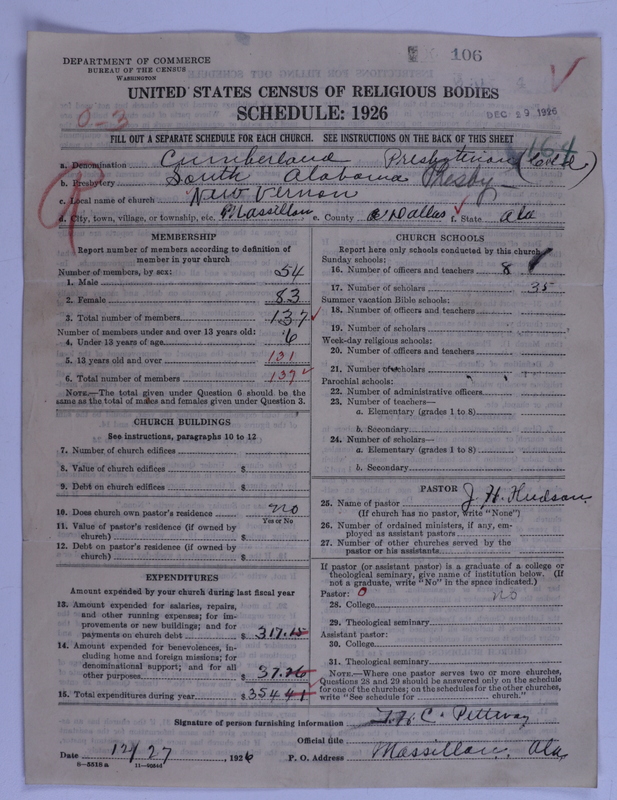 106
DEPARTMENT OF COMMERCE
BUREAU OF THE CENSUS
WASHINGTON
UNITED STATES CENSUS OF RELIGIOUS BODIES
SCHEDULE: 1926
DEC 29 1926
0-3
FILL OUT A SEPARATE SCHEDULE FOR EACH CHURCH. SEE INSTRUCTIONS ON THE BACK OF THIS SHEET
164
a. Denomination Cumberland Presbyterian (Col'd)
b. Presbytery South Alabama Presby
c. Local name of church New Vernon
d. City, town, village, or township, etc. Massillon e. County Dallas f. State Ala
R
MEMBERSHIP
Report number of members according to definition of
member in your church
Number of members, by sex:
1. Male 54
2. Female 83
3. Total number of members 137
Number of members under and over 13 years old:
4. Under 13 years of age 6
5. 13 years old and over 131
6. Total number of members 137
NOTE.—The total given under Question 6 should be the
same as the total of males and females given under Question 3.
CHURCH BUILDINGS
See instructions, paragraphs 10 to 12
7. Number of church edifices
8. Value of church edifices $
9. Debt on church edifices $
10. Does church own pastor's residence no
Yes or No
11. Value of pastor's residence (if owned by
church) $
12. Debt on pastor's residence (if owned by
church) $
EXPENDITURES
Amount expended by your church during last fiscal year
13. Amount expended for salaries, repairs,
and other running expenses; for im-
provements or new buildings; and for
payments on church debt $ 317.15
14. Amount expended for benevolences, in-
cluding home and foreign missions; for
denominational support; and for all
other purposes 37.26
15. Total expenditures during year $ 354 41
CHURCH SCHOOLS
Report here only schools conducted by this church
Sunday schools:
16. Number of officers and teachers 8
17. Number of scholars 35
Summer vacation Bible schools:
18. Number of officers and teachers
19. Number of scholars
Week-day religious schools:
20. Number of officers and teachers
21. Number of scholars
Parochial schools:
22. Number of administrative officers
23. Number of teachers—
a. Elementary (grades 1 to 8)
b. Secondary
24. Number of scholars—
a. Elementary (grades 1 to 8)
b. Secondary
PASTOR
25. Name of pastor J. H. Hudson
(If church has no pastor, write "None")
26. Number of ordained ministers, if any, em-
ployed as assistant pastors
27. Number of other churches served by the
pastor or his assistants
If pastor (or assistant pastor) is a graduate of a college or
theological seminary, give name of institution below. (If
not a graduate, write "No" in the space indicated.)
Pastor: 0
28. College no
29. Theological seminary
Assistant pastor:
30. College
31. Theological seminary
NOTE.—Where one pastor serves two or more churches,
Questions 28 and 29 should be answered only on the schedule
for one of the churches; on the schedules for the other churches,
write "See schedule for church."
Signature of person furnishing information C. Pettway
Official title
Date 12/27, 1926 P. O. Address Massillon, Ala
8-5518 a